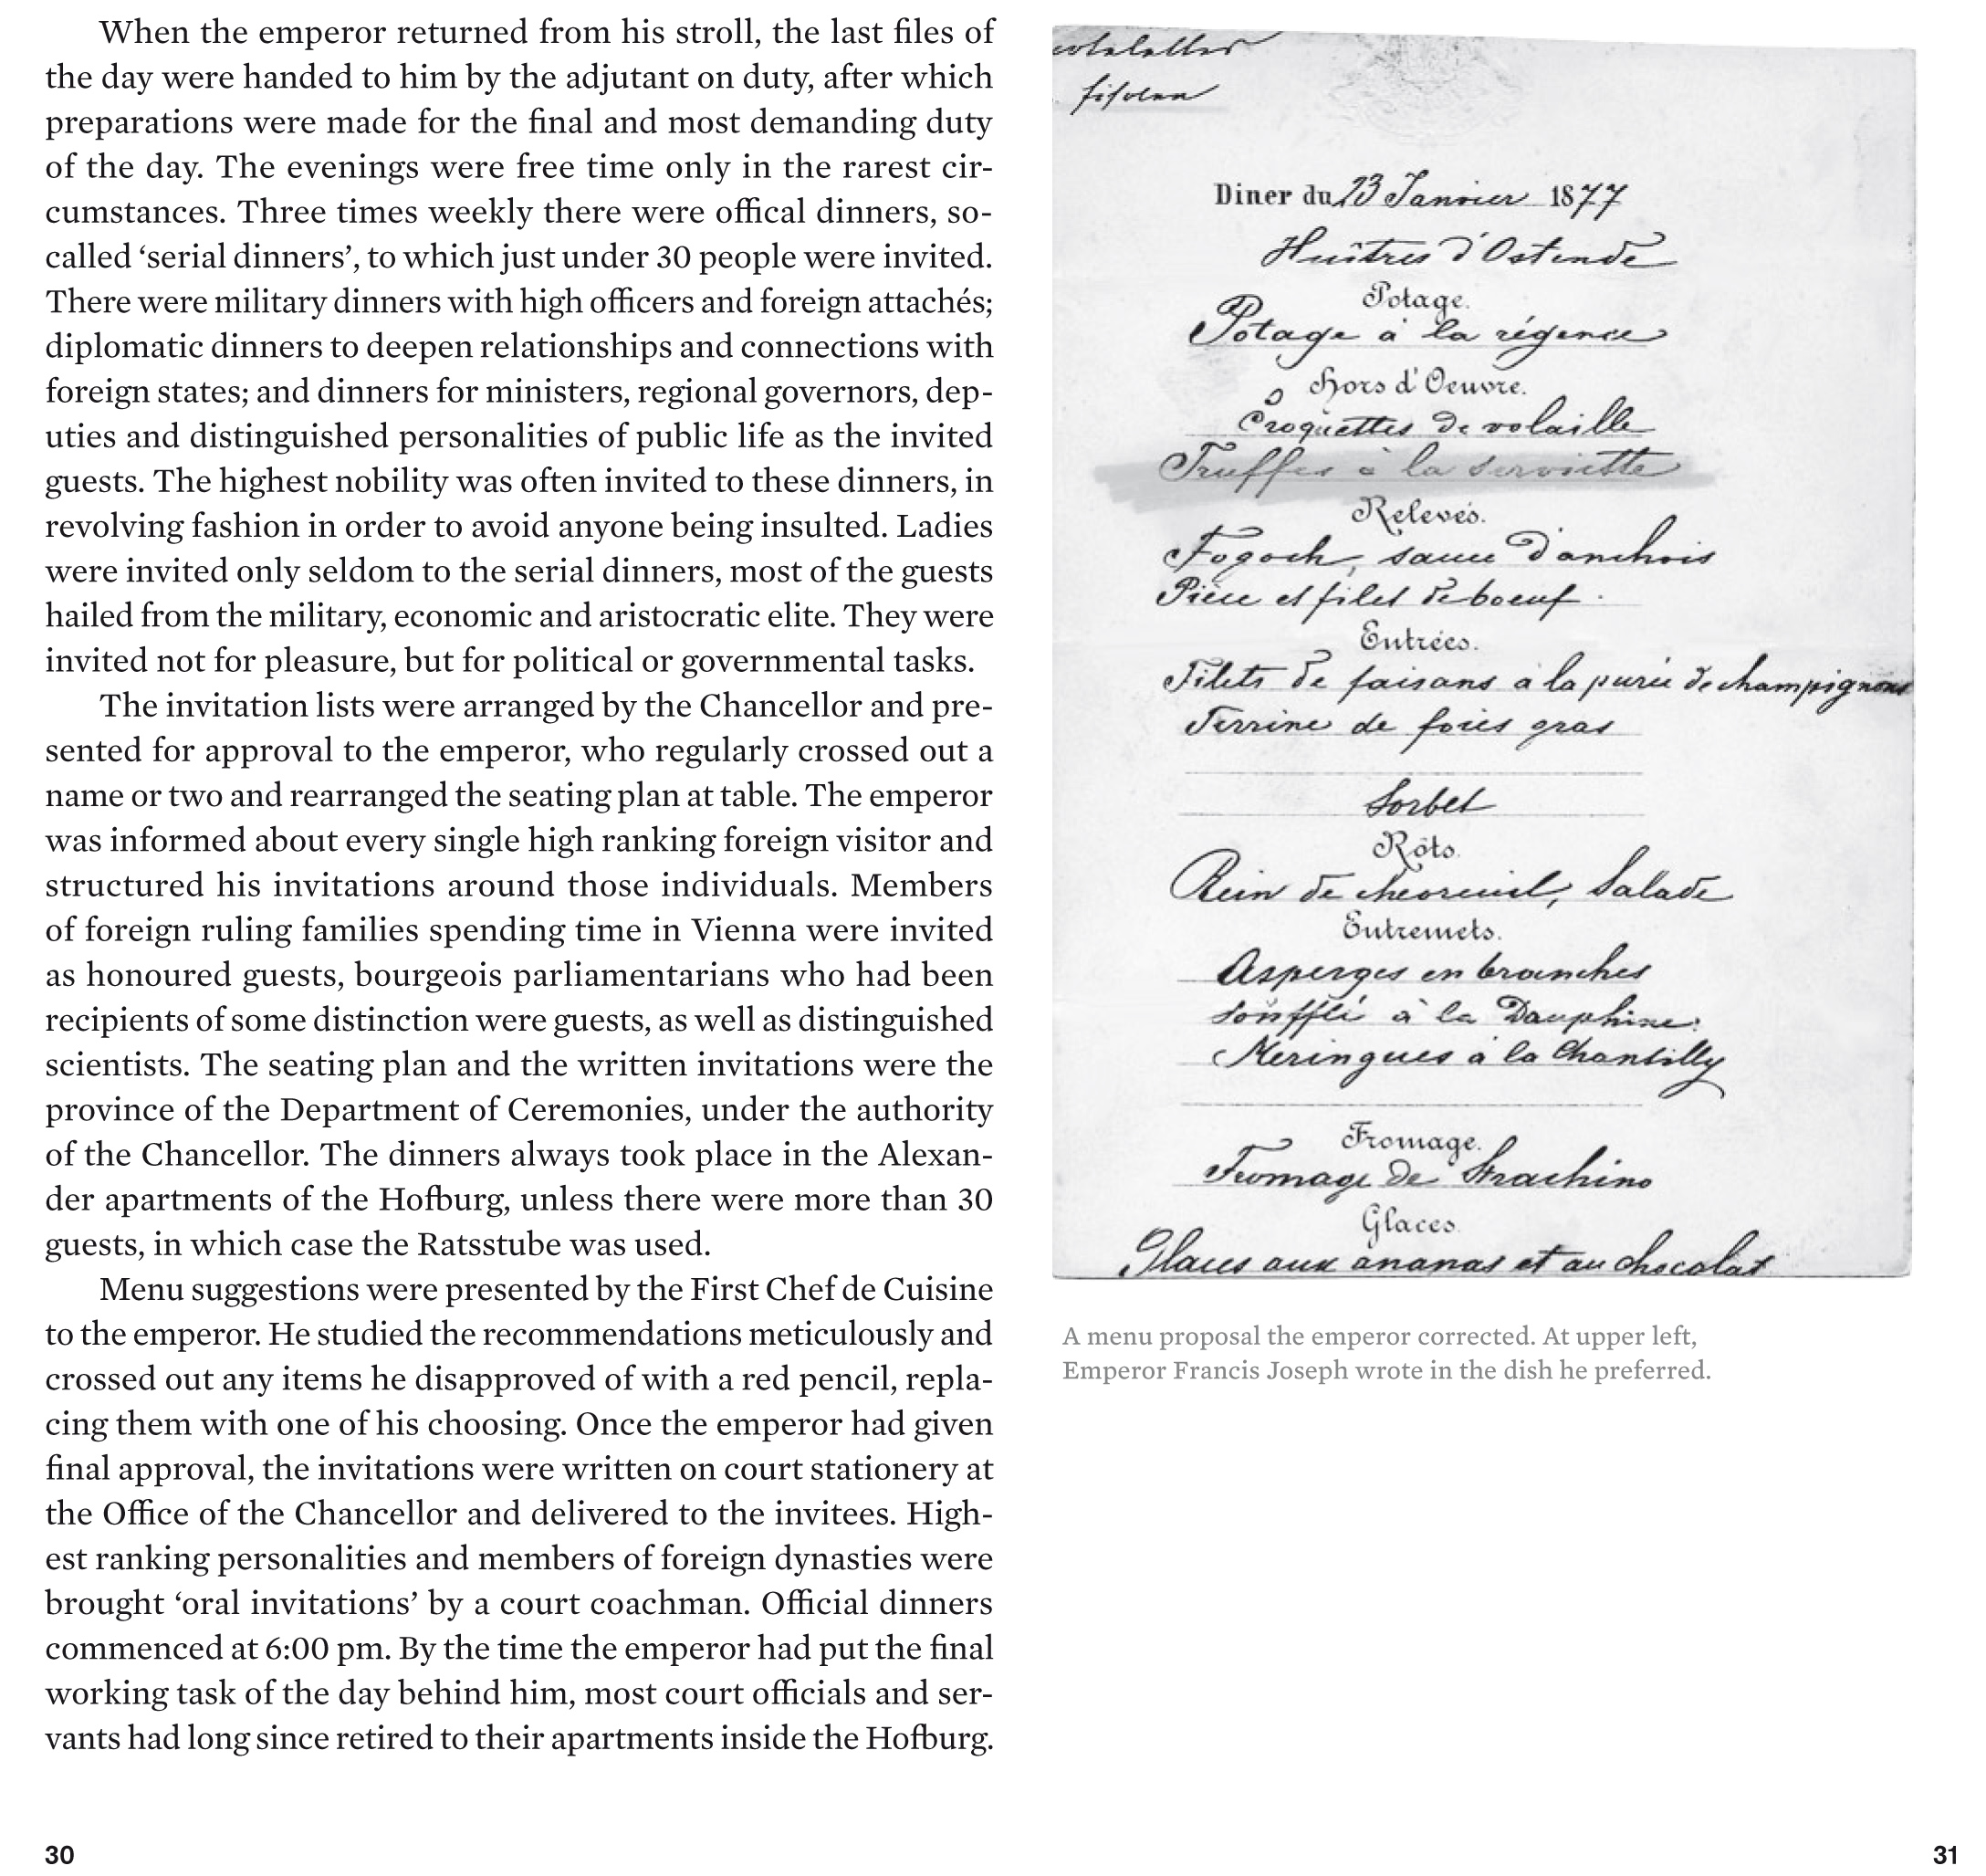 When the emperor returned from his stroll, the last files of
the day were handed to him by the adjutant on duty, after which
preparations were made for the final and most demanding duty
of the day. The evenings were free time only in the rarest cir-
cumstances. Three times weekly there were offical dinners, so-
called ‘serial dinners’, to which just under 30 people were invited.
There were military dinners with high officers and foreign attachés;
diplomatic dinners to deepen relationships and connections with
foreign states; and dinners for ministers, regional governors, dep-
uties and distinguished personalities of public life as the invited
guests. The highest nobility was often invited to these dinners, in
revolving fashion in order to avoid anyone being insulted. Ladies
were invited only seldom to the serial dinners, most of the guests
hailed from the military, economic and aristocratic elite. They were
invited not for pleasure, but for political or governmental tasks.
The invitation lists were arranged by the Chancellor and pre-
sented for approval to the emperor, who regularly crossed out a
name or two and rearranged the seating plan at table. The emperor
was informed about every single high ranking foreign visitor and
structured his invitations around those individuals. Members
of foreign ruling families spending time in Vienna were invited
as honoured guests, bourgeois parliamentarians who had been
recipients of some distinction were guests, as well as distinguished
scientists. The seating plan and the written invitations were the
province of the Department of Ceremonies, under the authority
of the Chancellor. The dinners always took place in the Alexan-
der apartments of the Hofburg, unless there were more than 30
guests, in which case the Ratsstube was used.
Menu suggestions were presented by the First Chef de Cuisine
to the emperor. He studied the recommendations meticulously and
crossed out any items he disapproved of with a red pencil, repla-
cing them with one of his choosing. Once the emperor had given
final approval, the invitations were written on court stationery at
the Office of the Chancellor and delivered to the invitees. High-
est ranking personalities and members of foreign dynasties were
brought ‘oral invitations’ by a court coachman. Official dinners
commenced at 6:00 pm. By the time the emperor had put the final
working task of the day behind him, most court officials and ser-
vants had long since retired to their apartments inside the Hofburg.
30
Diner du 13 Janvier 1877
Huîtres d'Ostende
Potage.
Potage à la régence
Hors d'Oeuvre.
Croquettes de volaille
Truffes à la serviette
Relevés.
Fogoch, sauce d'anchois
Pièce et filet de boeuf.
Entrées.
Filets de faisans à la purée de champignons
Terrine de foies gras
Sorbet
Rôts.
de cheoreuil, Salade
Entremets.
Asperges en branches
Soufflé à la Dauphine.
Meringues à la Chantilly
Fromage.
Fromage de Strachino
Glaces.
Glaces aux ananas et au chocolat
A menu proposal the emperor corrected. At upper left,
Emperor Francis Joseph wrote in the dish he preferred.
31